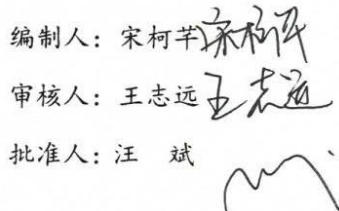 编制人：宋柯芊宋柯芊
审核人：王志远王志远
批准人：汪　斌